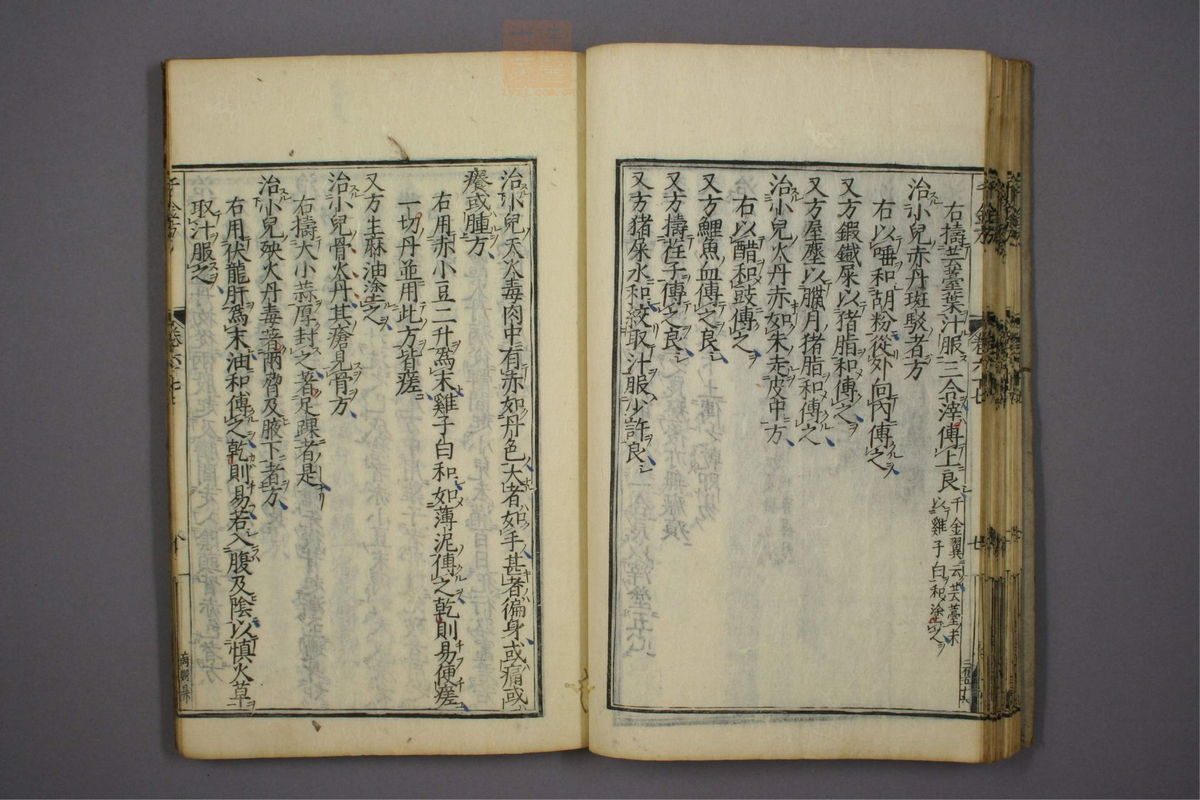 右擣芸薹葉汁服三合滓傅上良千金翼云芸薹末
以雞子白和塗之
治小兒赤丹斑駁者方
右以唾和胡粉從外向內傅之
又方鍛鐵屎以猪脂和傅之
又方屋塵以臘月猪脂和傅之
治小兒火丹赤如朱走皮中方
右以醋和豉傅之
又方鯉魚血傅之良
又方擣荏子傅之良
又方猪屎水和絞取汁服少許良
治小兒天火毒肉中有赤如丹色大者如手甚者徧身或痛或
癢或腫方
右用赤小豆二升為末雞子白和如薄泥傅之乾則易便瘥
一切丹並用此方皆瘥
又方生麻油塗之
治小兒骨火丹其瘡見骨方
右擣大小蒜厚封之著足踝者是
治小兒殃火丹毒著兩脅及腋下者方
右用伏龍肝為末油和傅之乾則易若入腹及陰以慎火草
取汁服之